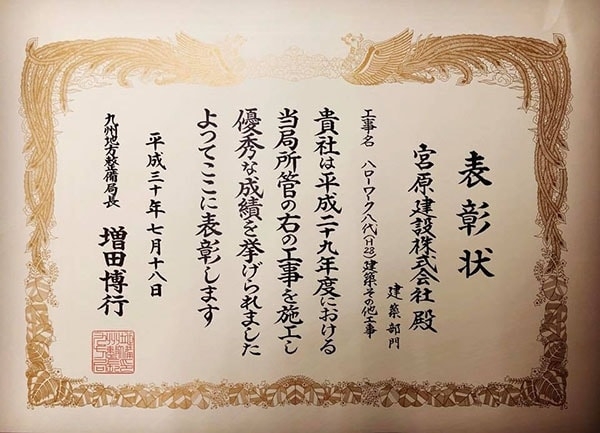 表彰状
建築部門
宮原建設株式会社 殿
工事名 ハローワーク八代(H28)建築その他工事
貴社は平成二十九年度における
当局所管の右の工事を施工し
優秀な成績を挙げられました
よってここに表彰します
平成三十年七月十八日
九州地方整備局長
増田博行